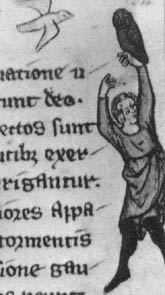 ratione u
runt deo.
ectos sunt
atibȝ exer
erigantur.
iores appa
tormentis
sione gau